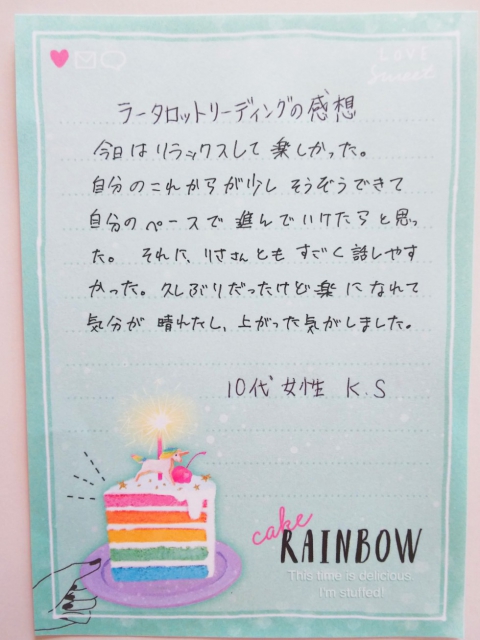 LOVE
Sweet
ラータロットリーディングの感想
今日はリラックスして楽しかった。
自分のこれからが少しそうぞうできて
自分のペースで進んでいけたらと思っ
た。それに、りささんともすごく話しやす
かった。久しぶりだったけど楽になれて
気分が晴れたし、上がった気がしました。
10代女性 K.S
cake
RAINBOW
This time is delicious.
I'm stuffed!